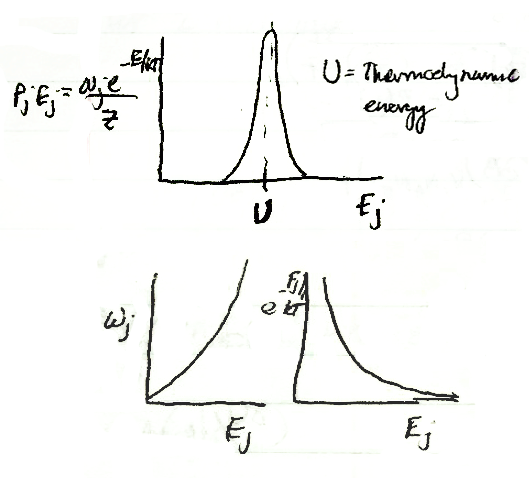 P_j E_j = ω_j e^{-E/kT} / Z
U = Thermodynamic
energy
U
E_j
ω_j
E_j
e^{-E_j/kT}
E_j